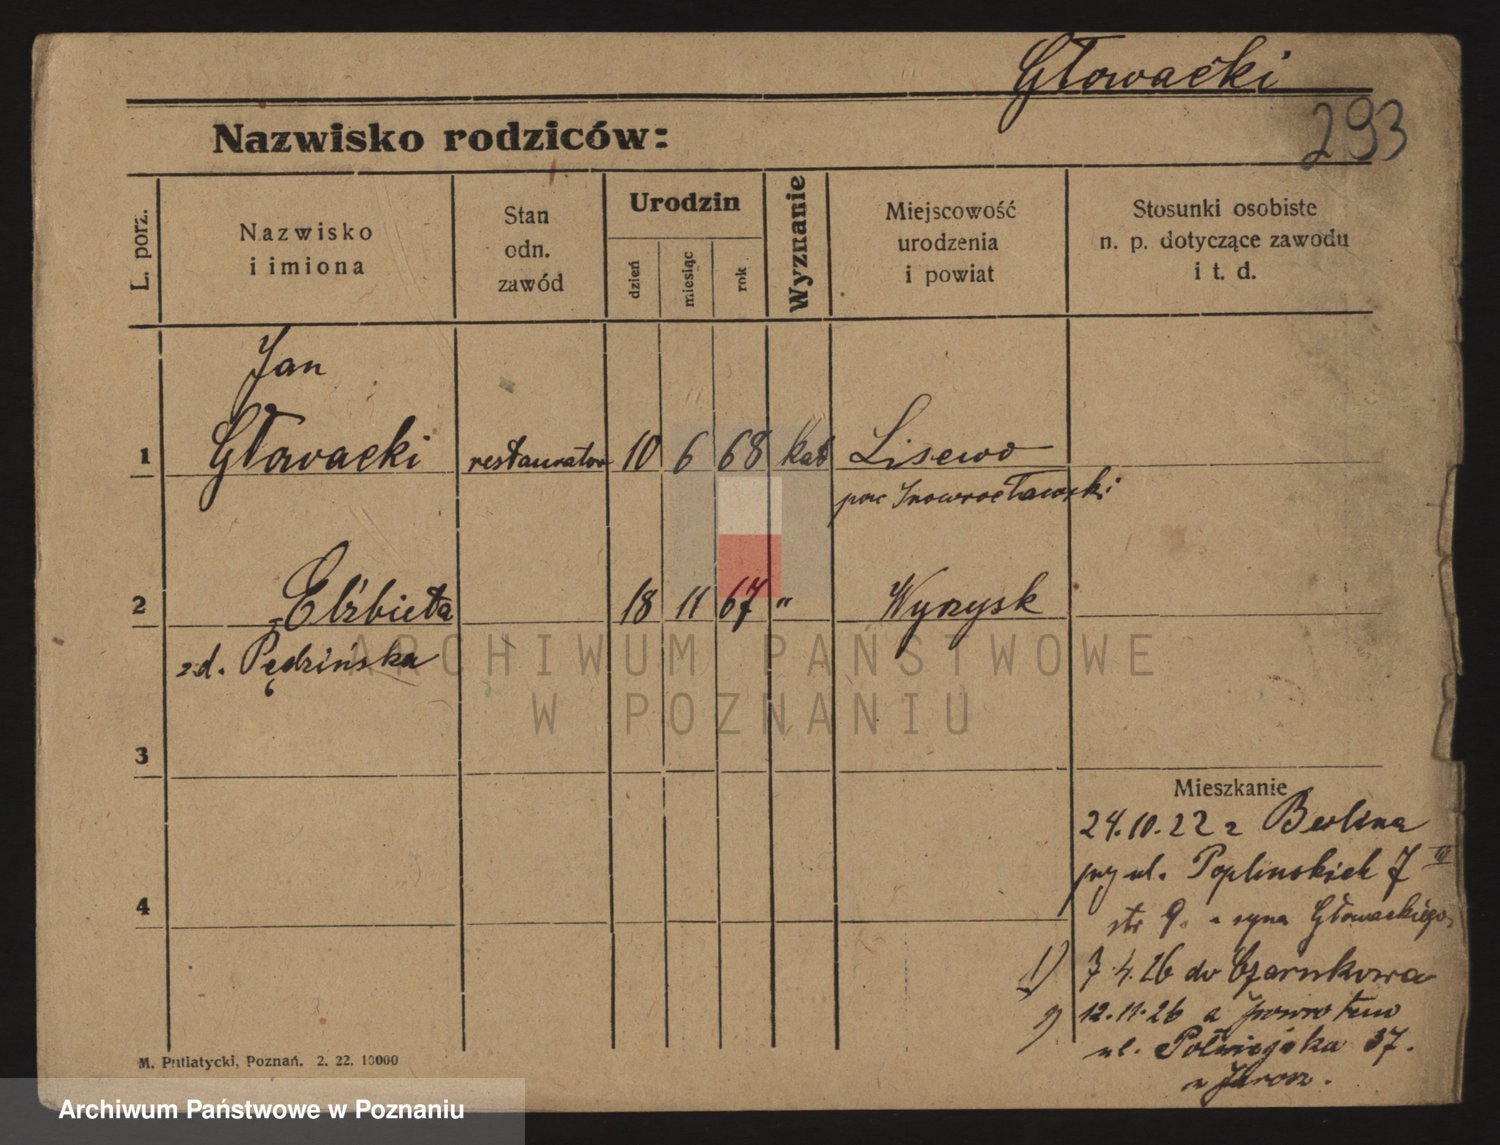 Głowacki
293
Nazwisko rodziców:
L. porz.
Nazwisko
i imiona
Stan
odn.
zawód
Urodzin
dzień
miesiąc
rok
Wyznanie
Miejscowość
urodzenia
i powiat
Stosunki osobiste
n. p. dotyczące zawodu
i t. d.
Jan
1 Głowacki restaurator 10 6 68 kat Lisewo
pow Inowrocławski
2 Elżbieta 18 11 67 " Wyrzysk
z d. Pędzińska
3
4
Mieszkanie
24.10.22 z Berlina
przy ul. Poplinskich 7 III
str 9. syna Głowackiego
1) 7.4.26 do Czarnkowa
2) 12.11.26 z powrotem
ul. Półwiejska 37.
M. Putiatycki, Poznań. 2. 22. 10000
ARCHIWUM PAŃSTWOWE
W POZNANIU
Archiwum Państwowe w Poznaniu